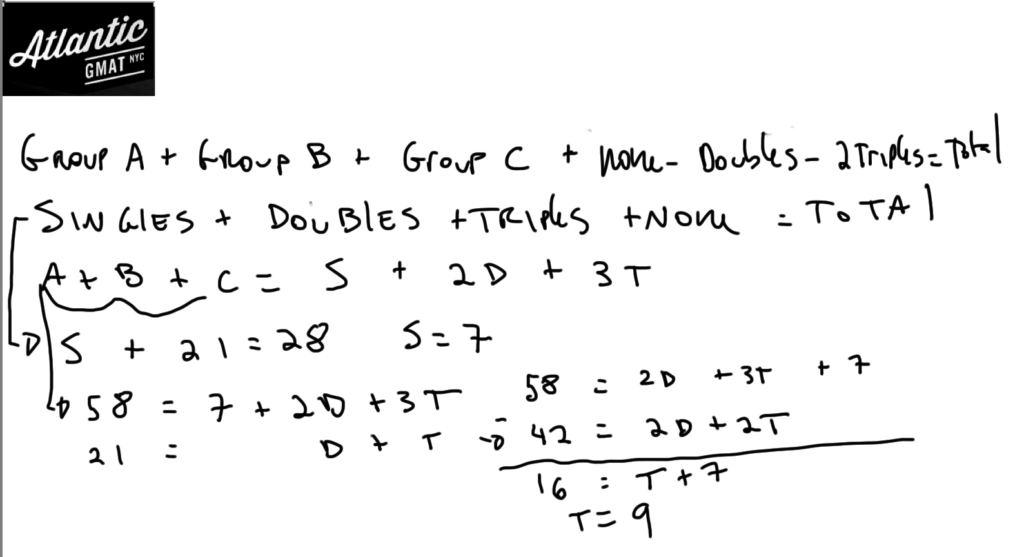 Atlantic
GMAT NYC
GROUP A + GROUP B + GROUP C + none - Doubles - 2 Triples = Total
SINGLES + DOUBLES + TRIPles + NONE = TOTAl
A + B + C = S + 2D + 3T
S + 21 = 28 S = 7
58 = 7 + 2D + 3T
21 = D + T
58 = 2D + 3T + 7
- 42 = 2D + 2T
16 = T + 7
T = 9